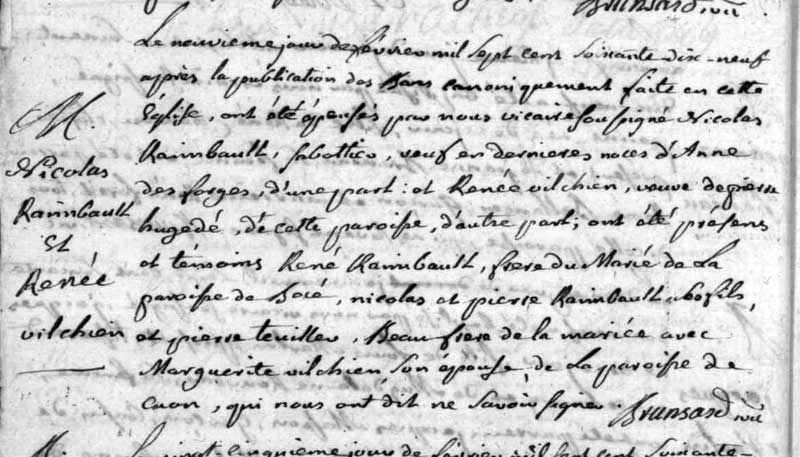 Brunsard vic
Le neuvieme jour de fevrier mil sept cent soixante-dix-neuf
après la publication des Bans canoniquement faite en cette
Eglise, ont été épousés par nous vicaire soussigné Nicolas
Raimbault, sabottier, veuf en dernieres noces d'Anne
des forges, d'une part : et Renée vilchien, veuve de pierre
hugedé, de cette paroisse, d'autre part; ont été présens
et témoins René Raimbault, frere du Marié de la
paroisse de Bocé, nicolas et pierre Raimbault fils,
et pierre teuiller, Beaufrere de la mariée avec
Marguerite vilchien son épouse, de la paroisse de
cuon, qui nous ont dit ne savoir signer. Brunsard vic
M.
Nicolas
Raimbault
Et
Renée
vilchien
Le vingt-cinquieme jour de fevrier mil sept cent soixante-